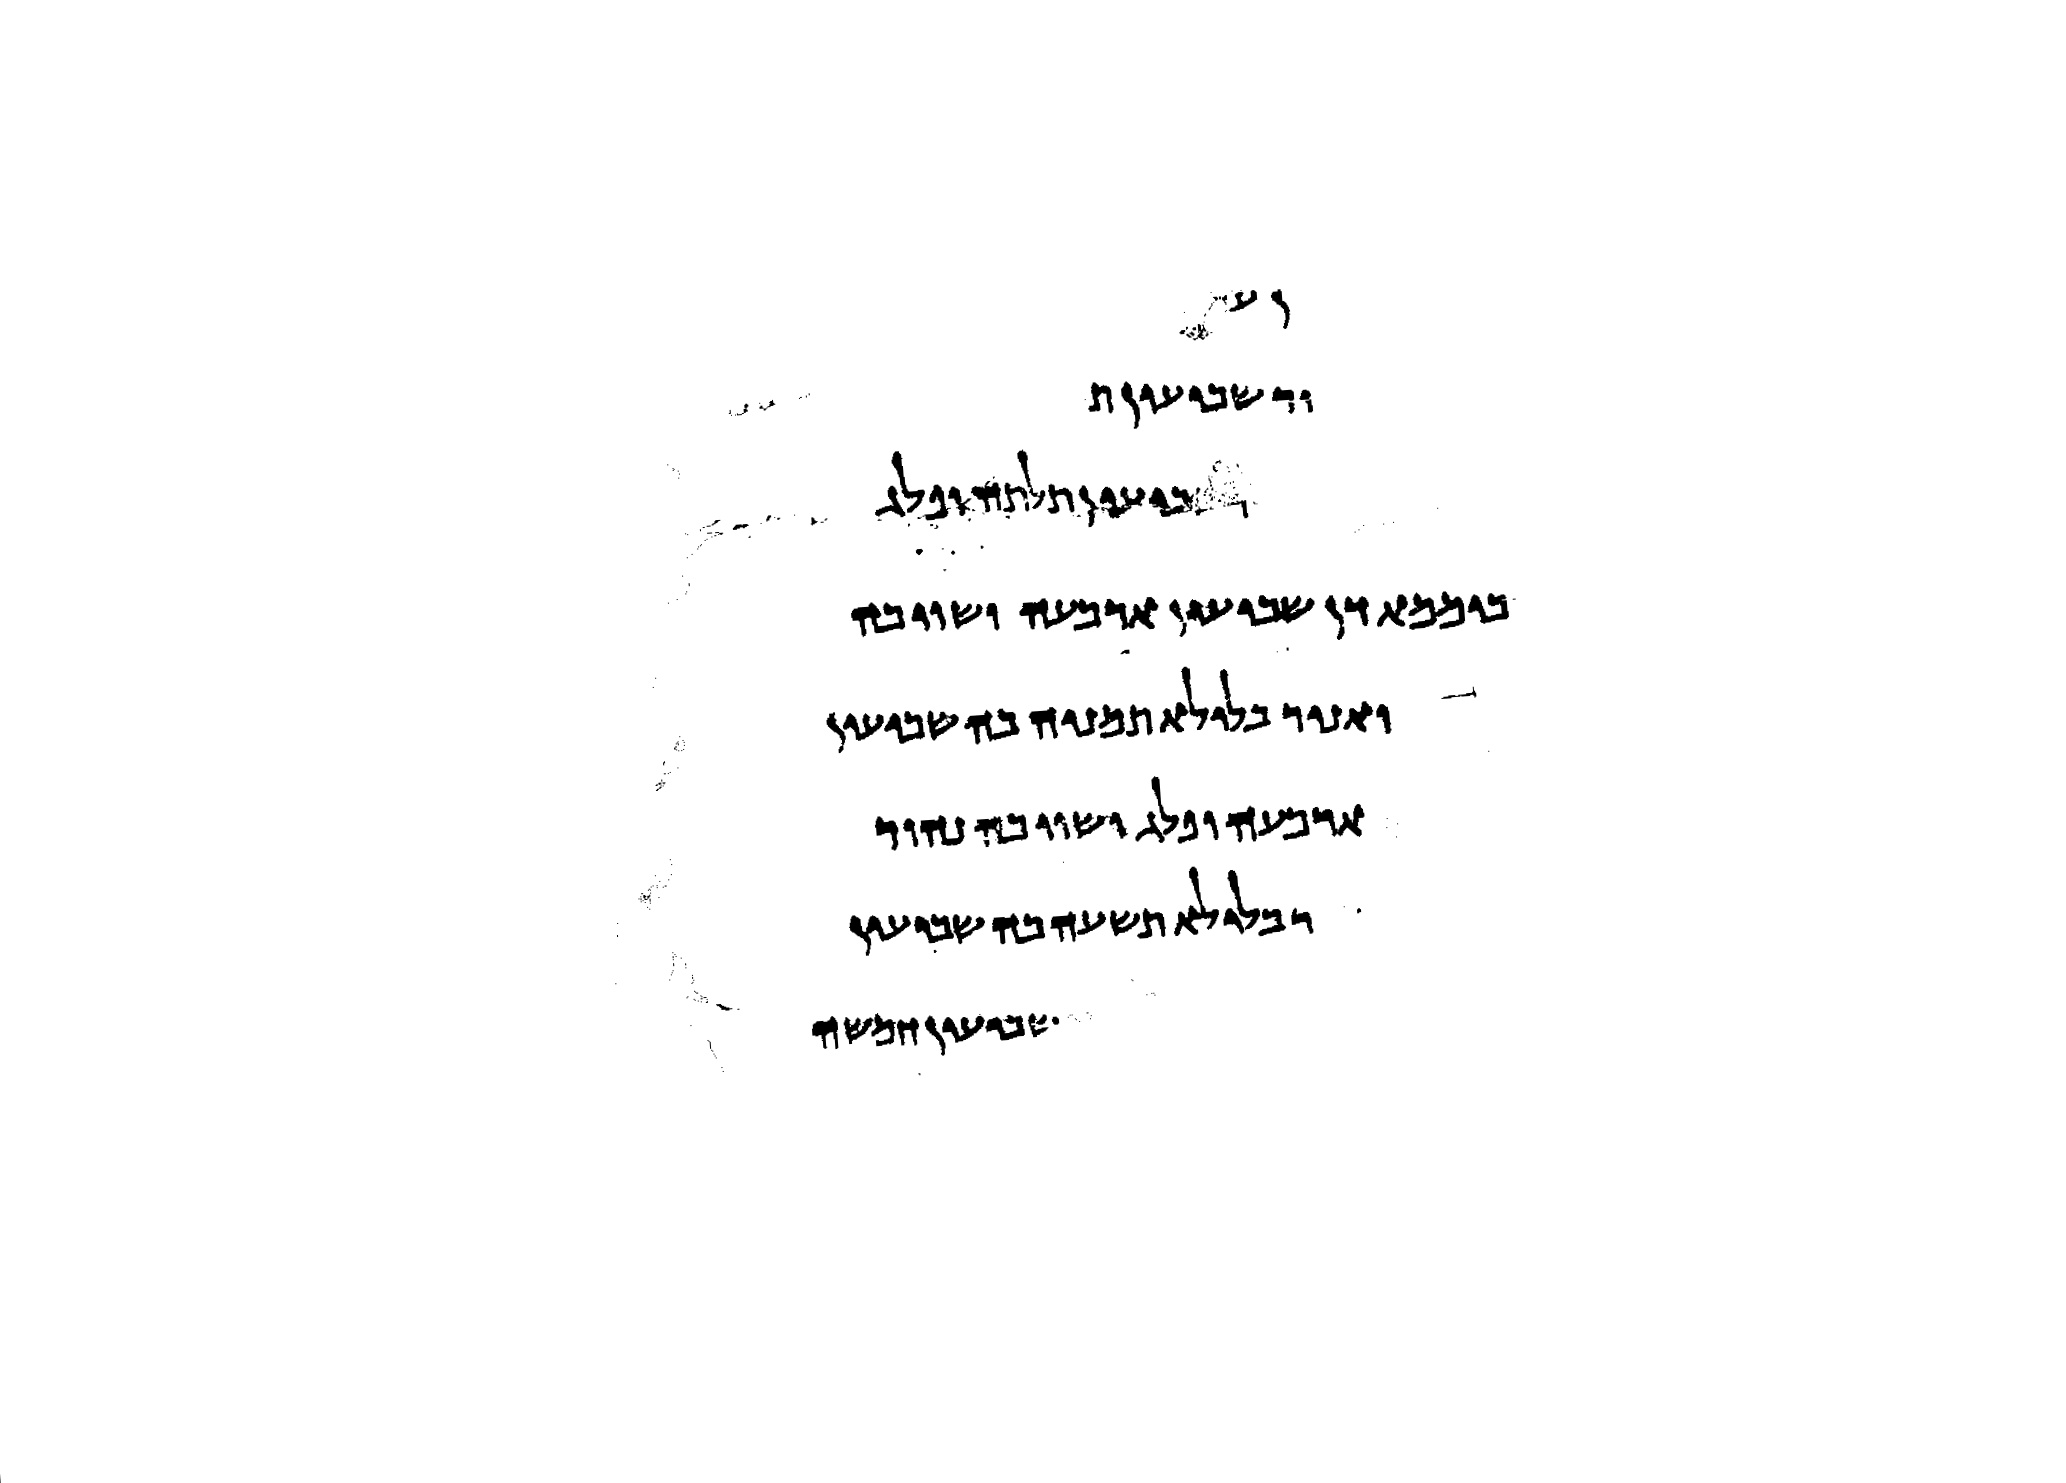 ן ע
שביעין ת
ביעין תלתה ופלג
ביממא דן שביעין ארבעה ושוי בה
ואניר בליליא תמניה בה שביעין
ארבעה ופלג ושוי בה נהור
ר בליליא תשעה בה שביעין
שביעין חמשה